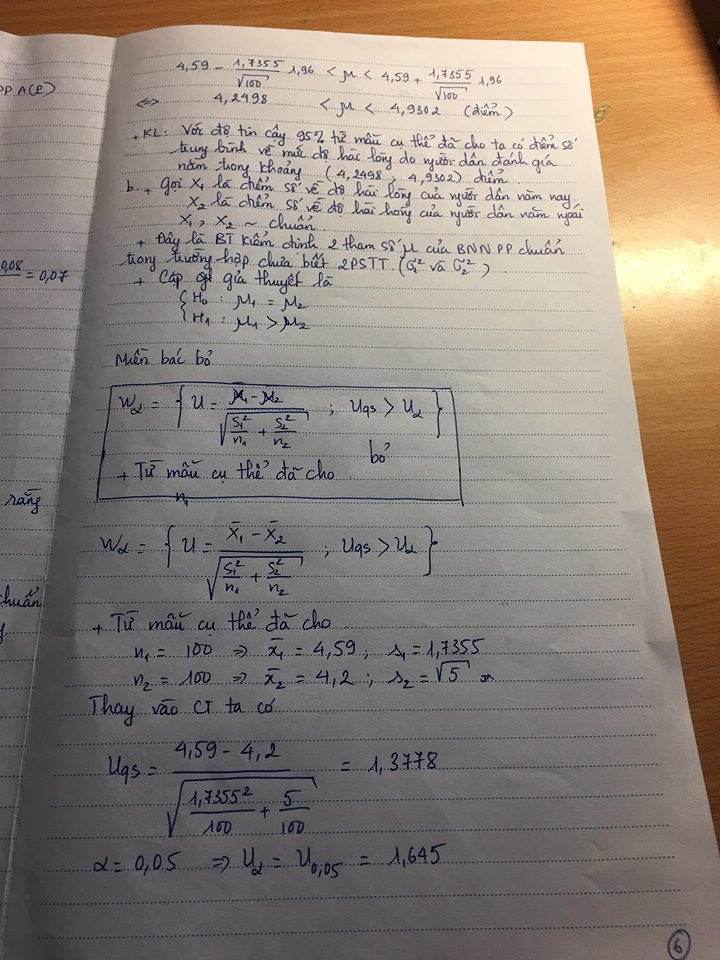 PP A(R)
0,08 = 0,07
rằng
chuẩn
4,59 - 1,7355/√100 1,96 < μ < 4,59 + 1,7355/√100 1,96
<=> 4,2498 < μ < 4,9302 (điểm)
+ KL: Với độ tin cậy 95% từ mẫu cụ thể đã cho ta có điểm số
trung bình về mức độ hài lòng do người dân đánh giá
nằm trong khoảng (4,2498 ; 4,9302) điểm
b. + Gọi X1 là điểm số về độ hài lòng của người dân năm nay
X2 là điểm số về độ hài lòng của người dân năm ngoái
X1, X2 ~ chuẩn
+ Đây là BT kiểm định 2 tham số μ của BNN PP chuẩn
trong trường hợp chưa biết 2PSTT (σ1² và σ2²)
+ Cặp giả thuyết là
{ H0 : μ1 = μ2
{ H1 : μ1 > μ2
Miền bác bỏ
Wα = { U = (μ1 - μ2)/√(S1²/n1 + S2²/n2) ; Uqs > Uα }
bỏ
+ Từ mẫu cụ thể đã cho
n1
Wα = { U = (X̄1 - X̄2)/√(S1²/n1 + S2²/n2) ; Uqs > Uα }
+ Từ mẫu cụ thể đã cho
n1 = 100 => x̄1 = 4,59 ; s1 = 1,7355
n2 = 100 => x̄2 = 4,2 ; s2 = √5
Thay vào CT ta có
Uqs = (4,59 - 4,2)/√(1,7355²/100 + 5/100) = 1,3778
α = 0,05 => Uα = U0,05 = 1,645
6